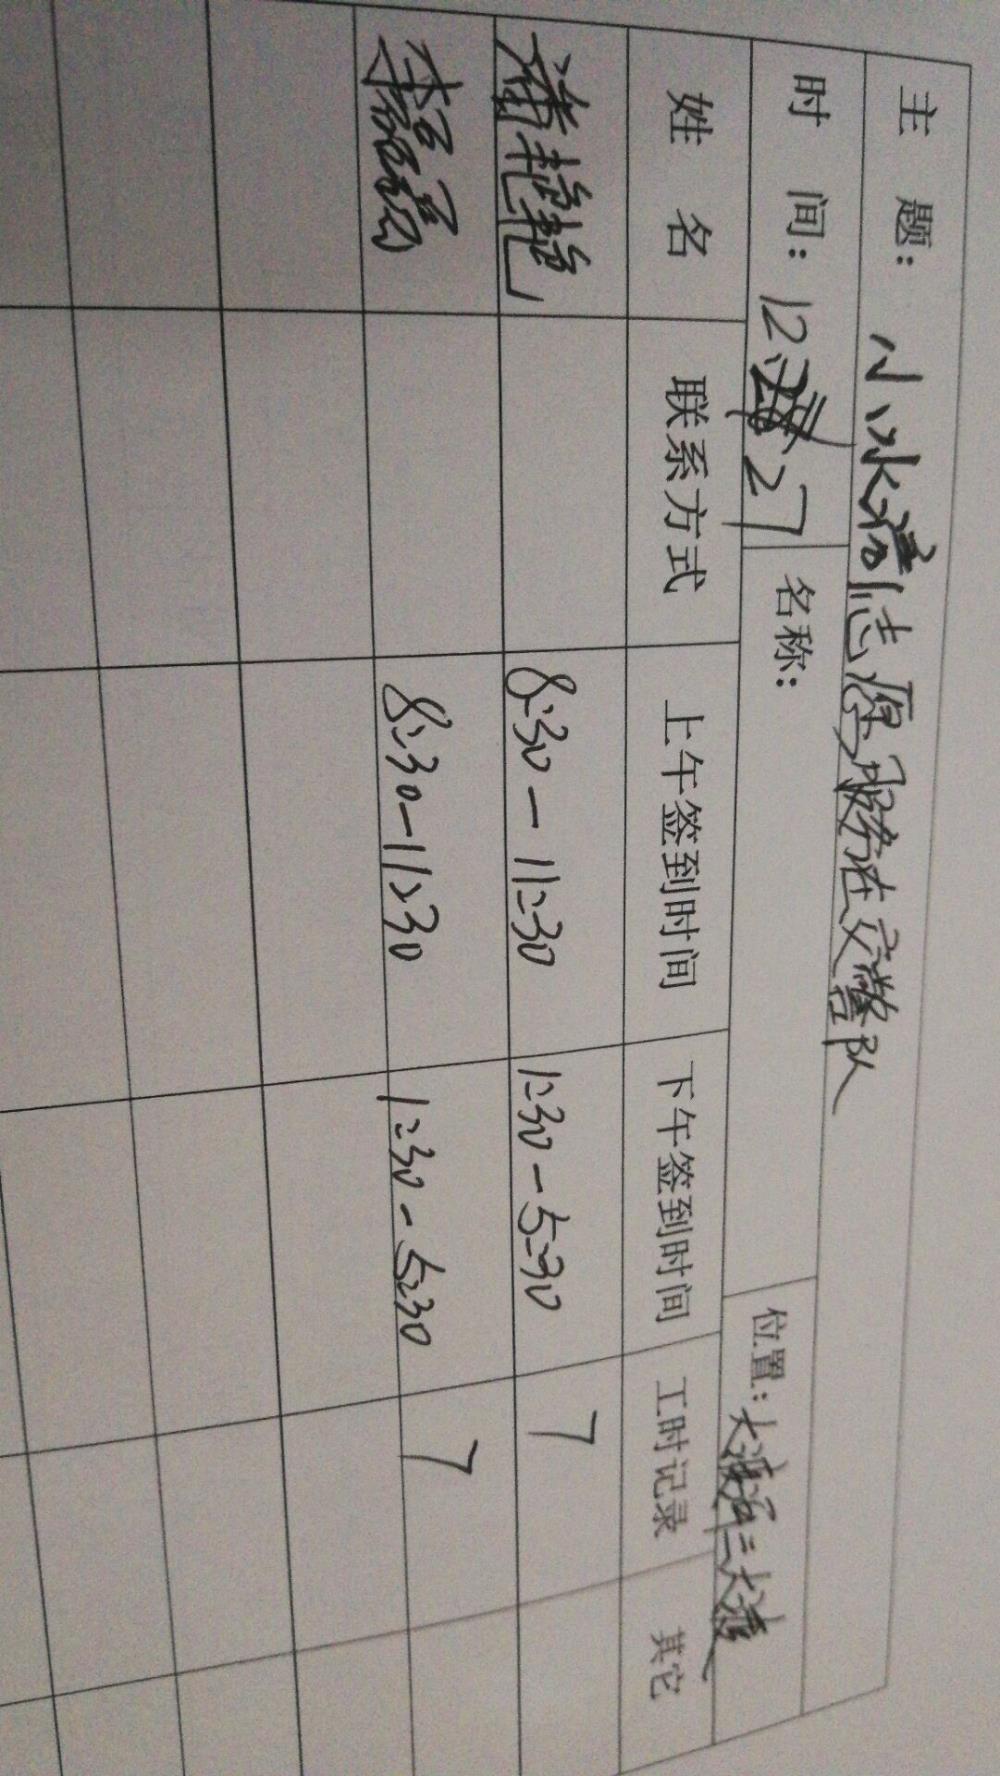 主 题： 小水滴志愿服务在交警队
时 间：12. 27 名称： 位置：
姓 名 联系方式 上午签到时间 下午签到时间 工时记录 其它
潘艳艳 8:30-11:30 1:30-5:30 7
8:30-11:30 1:30-5:30 7